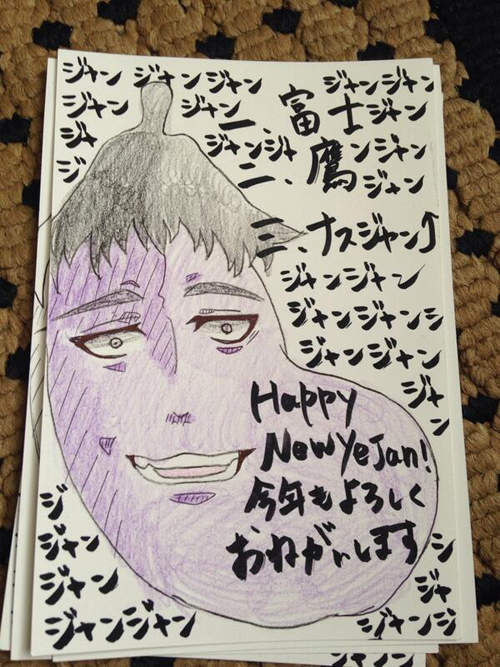 ジャン ジャンジャン ジャンジャン
ジャン ジャン 一、富士 ジャン
ジャ ジャンジャ 二、鷹 ンジャン
ジ ジャン
三、ナスジャン↑
ジャンジャン
ジャンジャンジ
ジャンジャン
ジャ
ン
Happy
New Yejan!
今年もよろしく
おねがいします
ジ
ジャ
ジャン
ジャンジャン
ジ
ジャ
ジャンジ